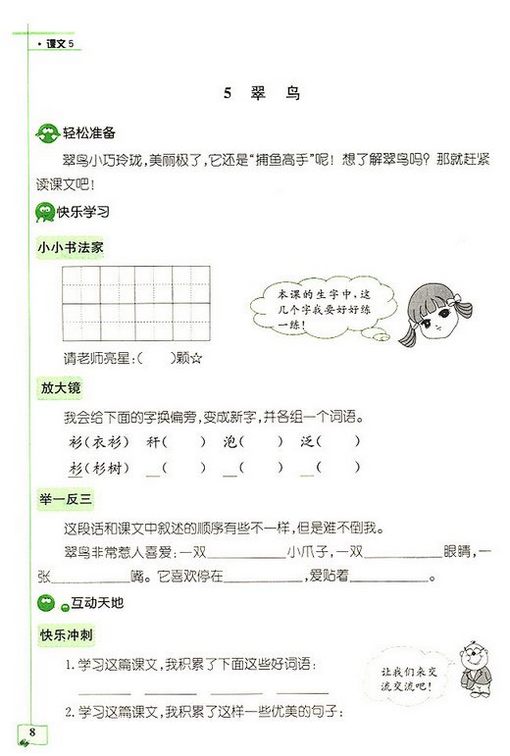 ·课文5
5 翠 鸟
轻松准备
翠鸟小巧玲珑,美丽极了,它还是“捕鱼高手”呢!想了解翠鸟吗?那就赶紧
读课文吧!
快乐学习
小小书法家
本课的生字中,这
几个字我要好好练
一练!
请老师亮星:( )颗☆
放大镜
我会给下面的字换偏旁,变成新字,并各组一个词语。
衫(衣衫) 秆( ) 泡( ) 泛( )
杉(杉树) _( ) _( ) _( )
举一反三
这段话和课文中叙述的顺序有些不一样,但是难不倒我。
翠鸟非常惹人喜爱:一双__________小爪子,一双__________眼睛,一
张__________嘴。它喜欢停在__________,爱贴着__________。
互动天地
快乐冲刺
1.学习这篇课文,我积累了下面这些好词语:
______ ______ ______ ______
让我们来交
流交流吧!
2.学习这篇课文,我积累了这样一些优美的句子:
8